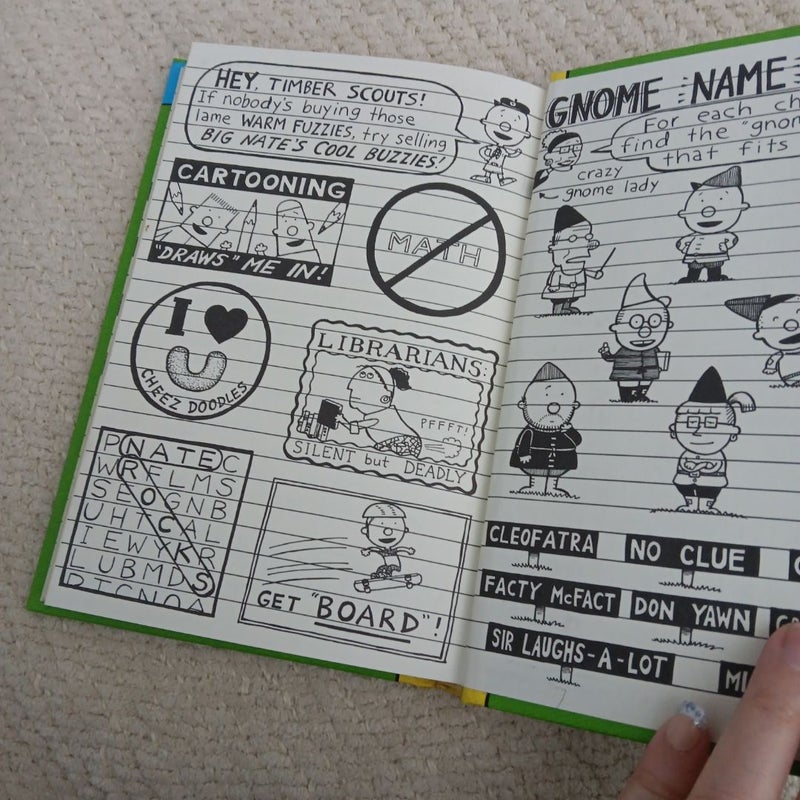 HEY, TIMBER SCOUTS!
If nobody's buying those
lame WARM FUZZIES, try selling
BIG NATE'S COOL BUZZIES!
CARTOONING
"DRAWS" ME IN!
MATH
I
CHEEZ DOODLES
LIBRARIANS:
PFFFT!
SILENT but DEADLY
PNATEC
WRFLMS
SEOGNB
UHTCAL
IEWYKR
LUBMDS
GET "BOARD"!
GNOME NAME
For each
find the
that fits
crazy
gnome lady
CLEOFATRA
NO CLUE
FACTY McFACT
DON YAWN
SIR LAUGHS-A-LOT